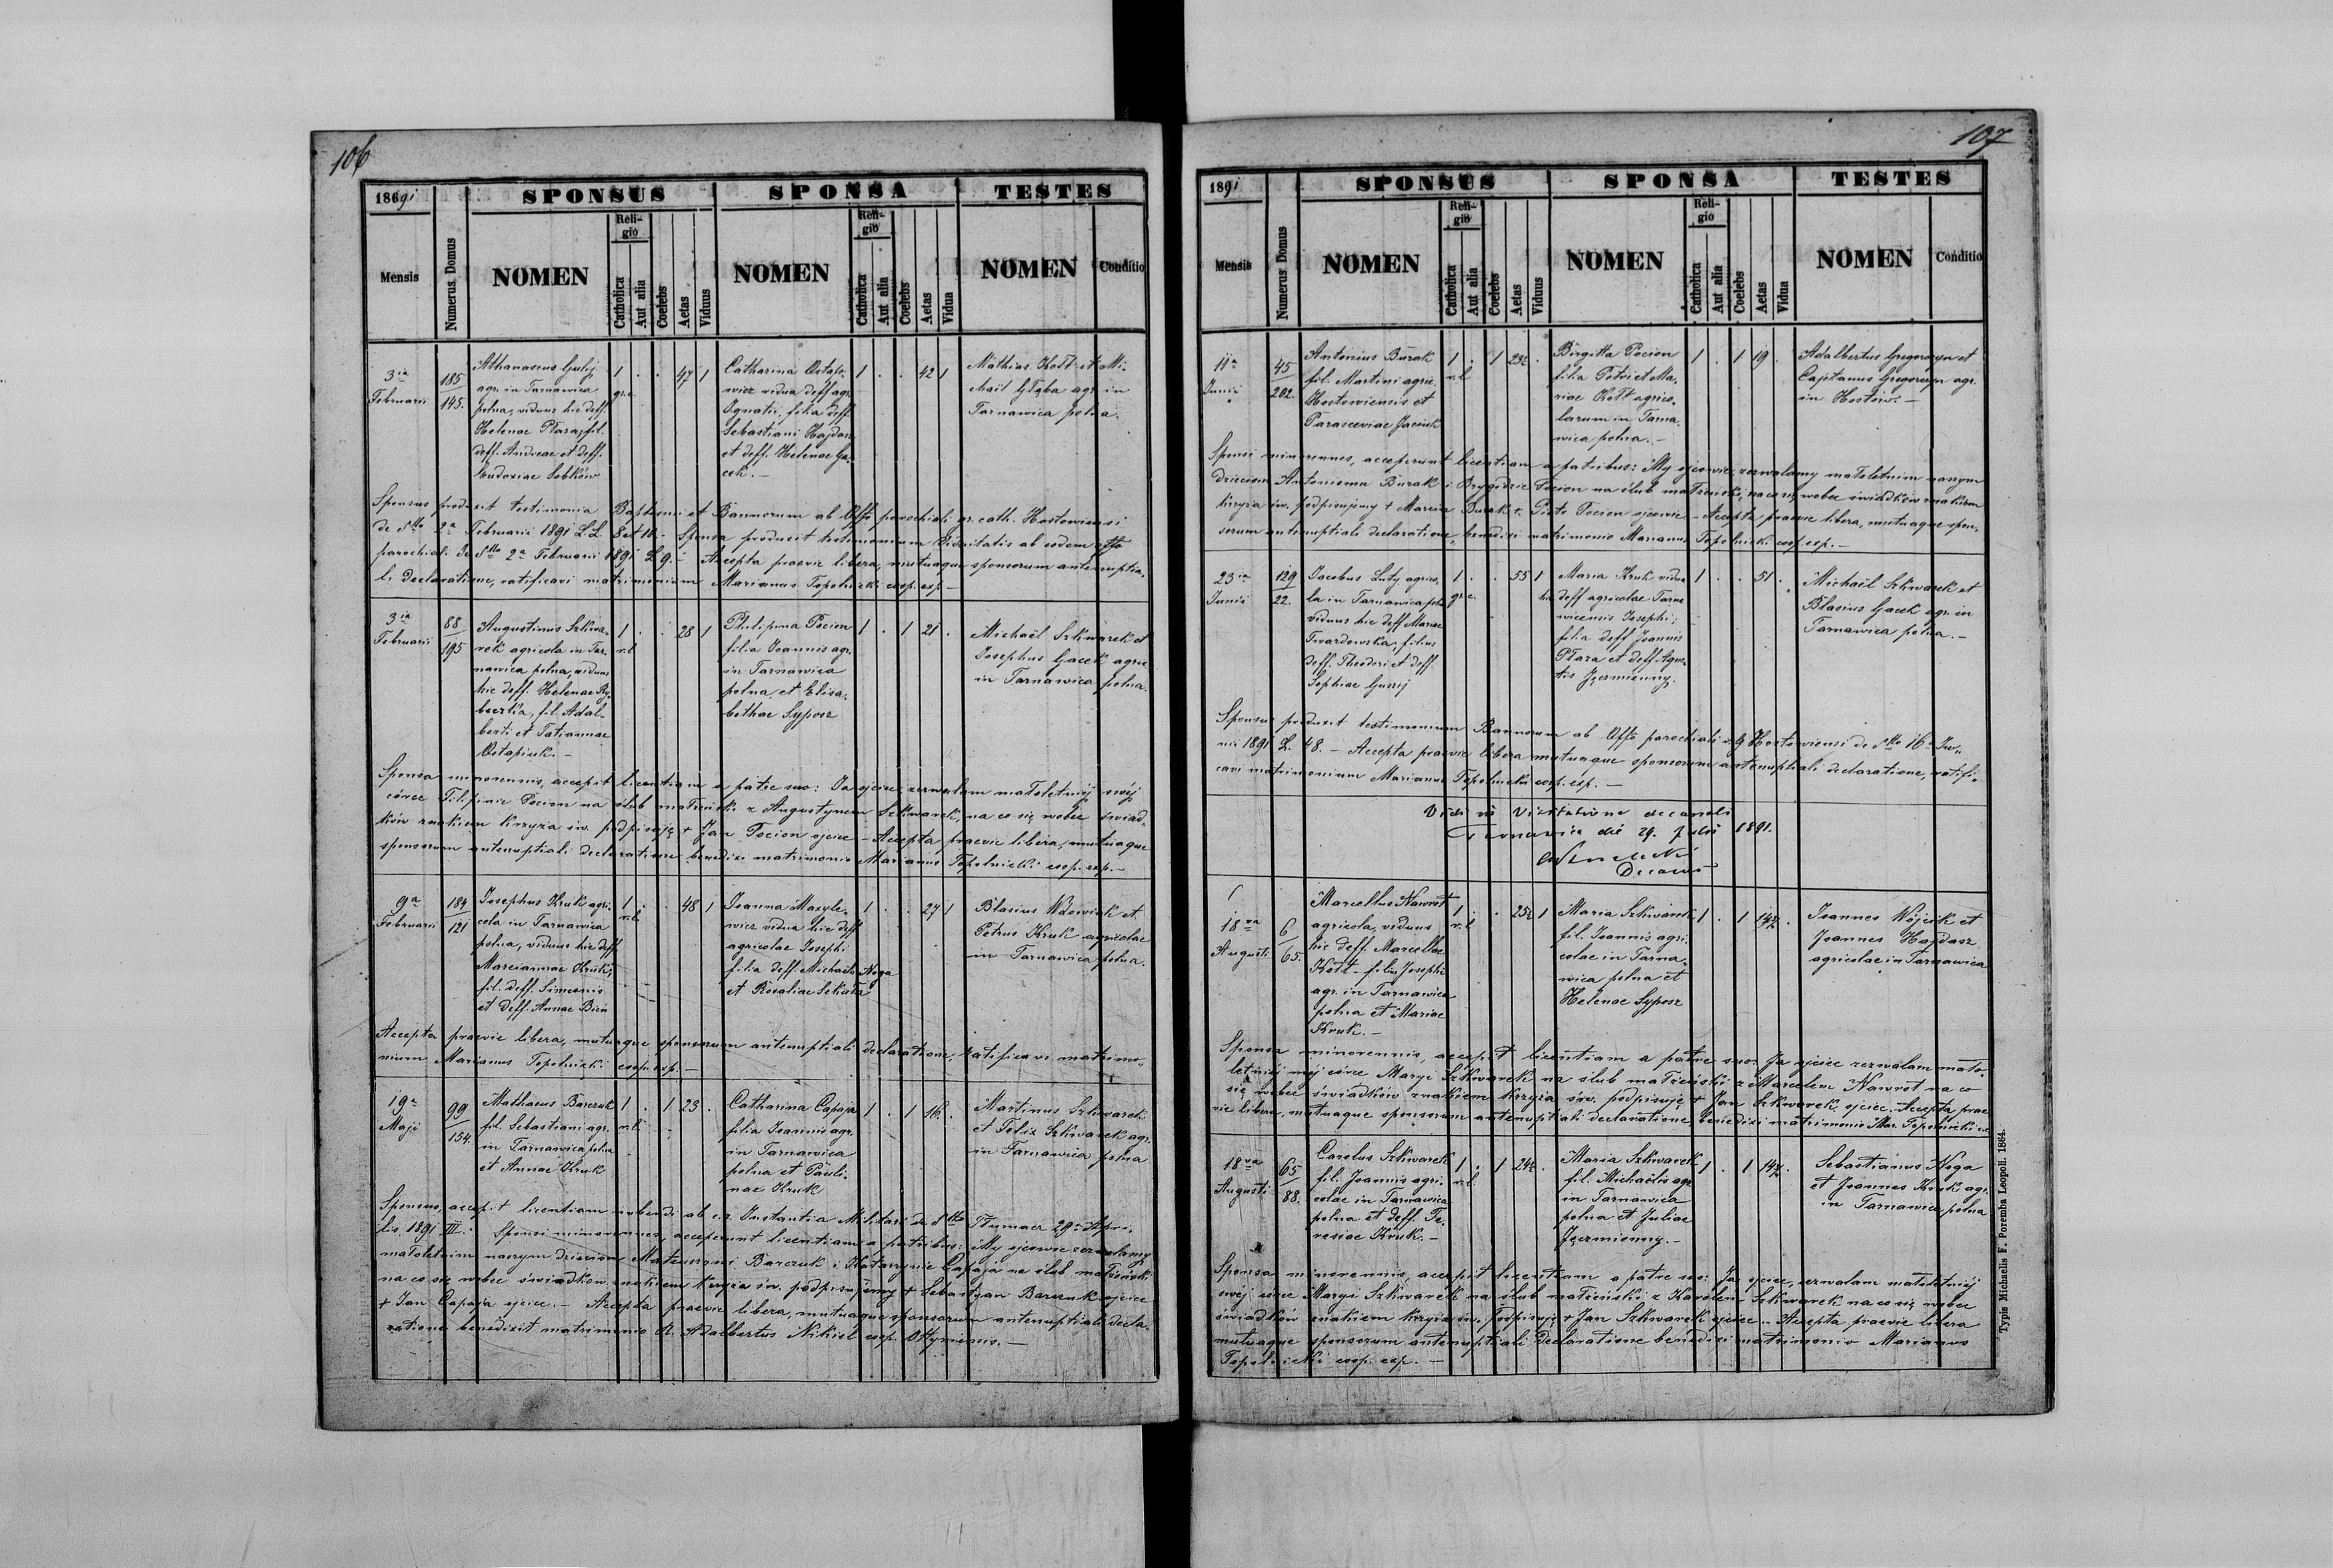 106
1891
SPONSUS
SPONSA
TESTES
Mensis
Numerus Domus
NOMEN
Religio
Catholica
Aut alia
Coelebs
Aetas
Viduus
NOMEN
Religio
Catholica
Aut alia
Coelebs
Aetas
Vidua
NOMEN
Conditio
3ia
Februarii
185
145.
Athanasius Gulij
agr. in Tarnawica
polna, viduus hic deff.
Helenae Ptara, fil.
deff. Andreae et deff.
Eudoxiae Sobków
1 . . 47 1
gr.c.
Catharina Ostapo-
wicz vidua deff agr.
Ignatii, filia deff.
Sebastiani Hajdasz
et deff. Helenae Ga-
cek. –
1 . . 42 1
Mathias Kott et Mi-
chail Głąba agr. in
Tarnawica polna.
Sponsus produxit testimonia Baptismi et Bannorum ab Offo parochiali gr. cath. Hostowiensi
de dtto 2a Februarii 1891 L.L. 8 et 10. – Sponsa produxit testimonium Viduitatis ab eodem offo
parochiali de dtto 2a Februarii 1891 L 9. – Accepta praevie libera, mutuaque sponsorum antenuptia-
li declaratione, ratificavi matrimonium Marianus Topolnicki coop. exp. –
3ia
Februarii
88
195
Augustinus Szkwa-
rek agricola in Tar-
nawica polna, viduus
hic deff. Helenae Ry-
baczka, fil. Adal-
berti et Tatiannae
Ostapiuk. –
1 . . 28 1
r.l
Philipina Pocion
filia Joannis agr.
in Tarnawica
polna et Elisa-
bethae Syposz
1 . 1 21 .
Michaël Szkwarek et
Josephus Gacek agric.
in Tarnawica polna.
Sponsa minorennis, accepit licentiam a patre suo: Ja ojciec zezwalam małoletniéj swéj
córce Filipinie Pocion na ślub małżeński z Augustynem Szkwarek, na co się wobec świad-
ków znakiem krzyża św. podpisuję + Jan Pocion ojciec – Accepta praevie libera, mutuaque
sponsorum antenuptiali declaratione benedixi matrimonio Marianus Topolnicki coop. exp. –
9a
Februarii
184
121
Josephus Kruk agri-
cola in Tarnawica
polna, viduus hic deff.
Marciannae Kruk,
fil. deff. Simeonis
et deff. Annae Bień
1 . . 48 1
r.l
Joanna Maxyle-
wicz vidua hic deff
agricolae Josephi
filia deff. Michaëlis Noga
et Rosaliae Sekuła
1 . . 27 1
Blasius Wdowiak et
Petrus Kruk agricolae
in Tarnawica polna.
Accepta praevie libera, mutuaque sponsorum antenuptiali declaratione, ratificavi matrimo-
nium Marianus Topolnicki coop. exp. –
19a
Maji
99
154.
Mathaeus Barczuk
fil. Sebastiani agr.
in Tarnawica polna
et Annae Kruk
1 . 1 23 .
r.l
Catharina Capaja
filia Joannis agr.
in Tarnawica
polna et Pauli-
nae Kruk
1 . 1 16 .
Martinus Szkwarek
et Felix Szkwarek agr.
in Tarnawica polna
Sponsus, accepit licentiam nubendi ab c.r. Instantia Militari de dtto Tłumacz 29a Apri-
lis 1891 III. – Sponsi minorennes, acceperunt licentiam a patribus: My ojcowie zezwalamy
małoletnim naszym dzieciom Mateuszowi Barczuk i Katarzynie Capaja na ślub małżeński
na co się wobec świadków znakiem krzyża św. podpisujemy + Sebastyan Barczuk ojciec
+ Jan Capaja ojciec. – Accepta praevie libera, mutuaque sponsorum antenuptiali decla-
ratione benedixit matrimonio R. Adalbertus Nikiel coop. Ottyniensis. –
107
1891
SPONSUS
SPONSA
TESTES
Mensis
Numerus Domus
NOMEN
Religio
Catholica
Aut alia
Coelebs
Aetas
Viduus
NOMEN
Religio
Catholica
Aut alia
Coelebs
Aetas
Vidua
NOMEN
Conditio
11a
Junii
45
202.
Antonius Burak
fil. Martini agric.
Hostowiensis et
Parasceviae Jaciuk
1 . 1 23½ .
r.l
Birgitta Pocion
filia Petri et Ma-
riae Kott agrico-
larum in Tarna-
wica polna. –
1 . 1 19 .
Adalbertus Gregoraszyn et
Cajetanus Gregoraszyn agr.
in Hostów. –
Sponsi minorennes, acceperunt licentiam a patribus: My ojcowie, zezwalamy małoletnim naszym
dzieciom Antoniemu Burak i Brygidzie Pocion na ślub małżeński, na co się wobec świadków znakiem
krzyża św. podpisujemy + Marcin Burak + Piotr Pocion ojcowie – Accepta praevie libera, mutuaque spon-
sorum antenuptiali declaratione, benedixi matrimonio Marianus Topolnicki coop. exp. –
23ia
Junii
129
22.
Jacobus Luty agrico-
la in Tarnawica polna
viduus hic deff Mariae
Twardowska, filius
deff. Theodori et deff.
Sophiae Guszij
1 . . 55 1
gr.c.
Maria Kruk vidua
deff agricolae Tarna
wicensis Josephi;
filia deff Joannis
Ptara et deff. Agne-
tis Jęczmienny.
1 . . 51 .
Michaël Szkwarek et
Blasius Gacek agr. in
Tarnawica polna. –
Sponsus produxit testimonium Bannorum ab Offo parochiali Hostowiensi de dtto 16a Ju-
nii 1891 L. 48. – Accepta praevie libera mutuaque sponsorum antenuptiali declaratione, ratifi-
cavi matrimonium Marianus Topolnicki coop. exp. –
Vidi in Visitatione decanali
Tarnawica die 29. Julii 1891.
Decanus
18va
Augusti
6
65.
Marcellus Nawrot
agricola, viduus
hic deff. Marcellae
Kott – filius Josephi
agr. in Tarnawica
polna et Mariae
Kruk. –
1 . . 25½ 1
r.l
Maria Szkwarek
fil. Joannis agri-
colae in Tarna-
wica polna et
Helenae Syposz
1 . 1
Joannes Wójcik et
Joannes Hajdasz
agricolae in Tarnawica
Sponsa minorennis, accepit licentiam a patre suo: Ja ojciec zezwalam mało-
letniéj méj córce Maryi Szkwarek na ślub małżeński z Marcelem Nawrot na co
się wobec świadków znakiem krzyża św. podpisuję + Jan Szkwarek ojciec. – Accepta prae-
vie libera, mutuaque sponsorum antenuptiali declaratione benedixi matrimonio Mar. Topolnicki c.e.
18va
Augusti
65
88.
Carolus Szkwarek
fil. Joannis agri-
colae in Tarnawica
polna et deff. Te-
resiae Kruk. –
1 . 1 24½ .
r.l
Maria Szkwarek
fil. Michaëlis agr.
in Tarnawica
polna et Juliae
Jęczmienny. –
1 . 1
Sebastianus Noga
et Joannes Kruk agr.
in Tarnawica polna
Sponsa minorennis, accepit licentiam a patre suo: Ja ojciec, zezwalam małoletniéj
swéj córce Maryi Szkwarek na ślub małżeński z Karolem Szkwarek na co się wobec
świadków znakiem krzyża św. podpisuję + Jan Szkwarek ojciec. – Accepta praevie libera
mutuaque sponsorum antenuptiali declaratione benedixi matrimonio Marianus
Topolnicki coop. exp. –
Typis Michaelis F. Poremba Leopoli. 1864.